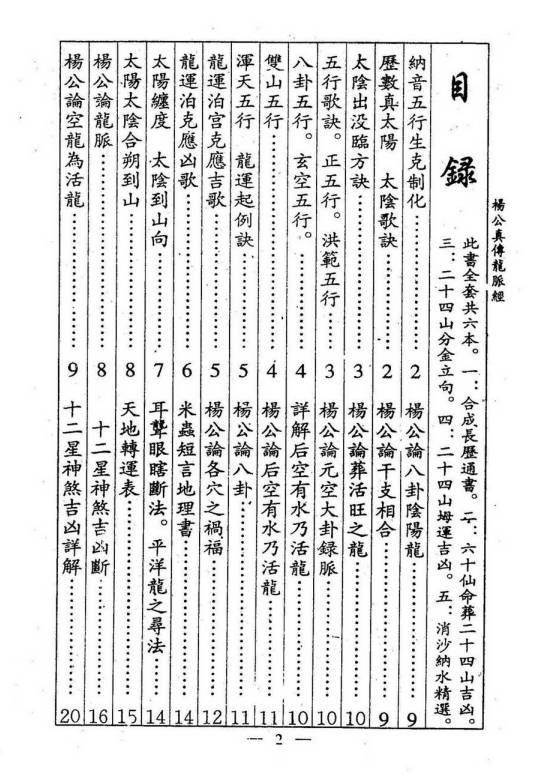 楊公真傳龍脈經
目錄
此書全套共六本。一:合成長歷通書。二:六十仙命葬二十四山吉凶。
三:二十四山分金立句。四:二十四山坶運吉凶。五:消沙納水精選。
納音五行生克制化……2 楊公論八卦陰陽龍……9
歷數真太陽 太陰歌訣……2 楊公論干支相合……9
太陰出没臨方訣……3 楊公論葬活旺之龍……10
五行歌訣。正五行。洪範五行……3 楊公論元空大卦録脈……10
八卦五行。玄空五行。……4 詳解后空有水乃活龍……10
雙山五行……4 楊公論后空有水乃活龍……11
渾天五行 龍運起例訣……5 楊公論八卦……11
龍運泊宫克應吉歌……5 楊公論各穴之禍福……12
龍運泊克應凶歌……6 米蟲短言地理書……14
太陽纏度 太陰到山向……7 耳聾眼瞎斷法。平洋龍之尋法……14
太陽太陰合朔到山……8 天地轉運表……15
楊公論龍脈……8 十二星神煞吉凶斷……16
楊公論空龍為活龍……9 十二星神煞吉凶詳解……20
— 2 —